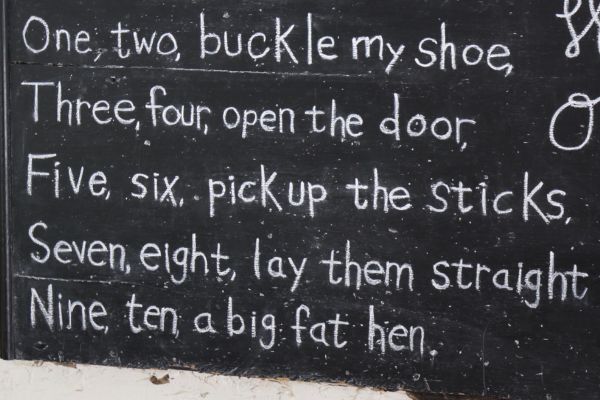 One, two, buckle my shoe,
Three, four, open the door,
Five, six, pick up the sticks,
Seven, eight, lay them straight
Nine, ten, a big fat hen.